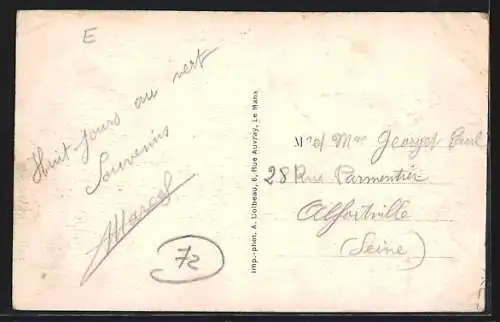 E
Huit jours au vert
Souvenirs
Marcel
72
Imp.-phot. A. Dolbeau, 6, Rue Auvray, Le Mans
M r et Mme Georget Paul
28 Rue Parmentier
Alfortville
(Seine)